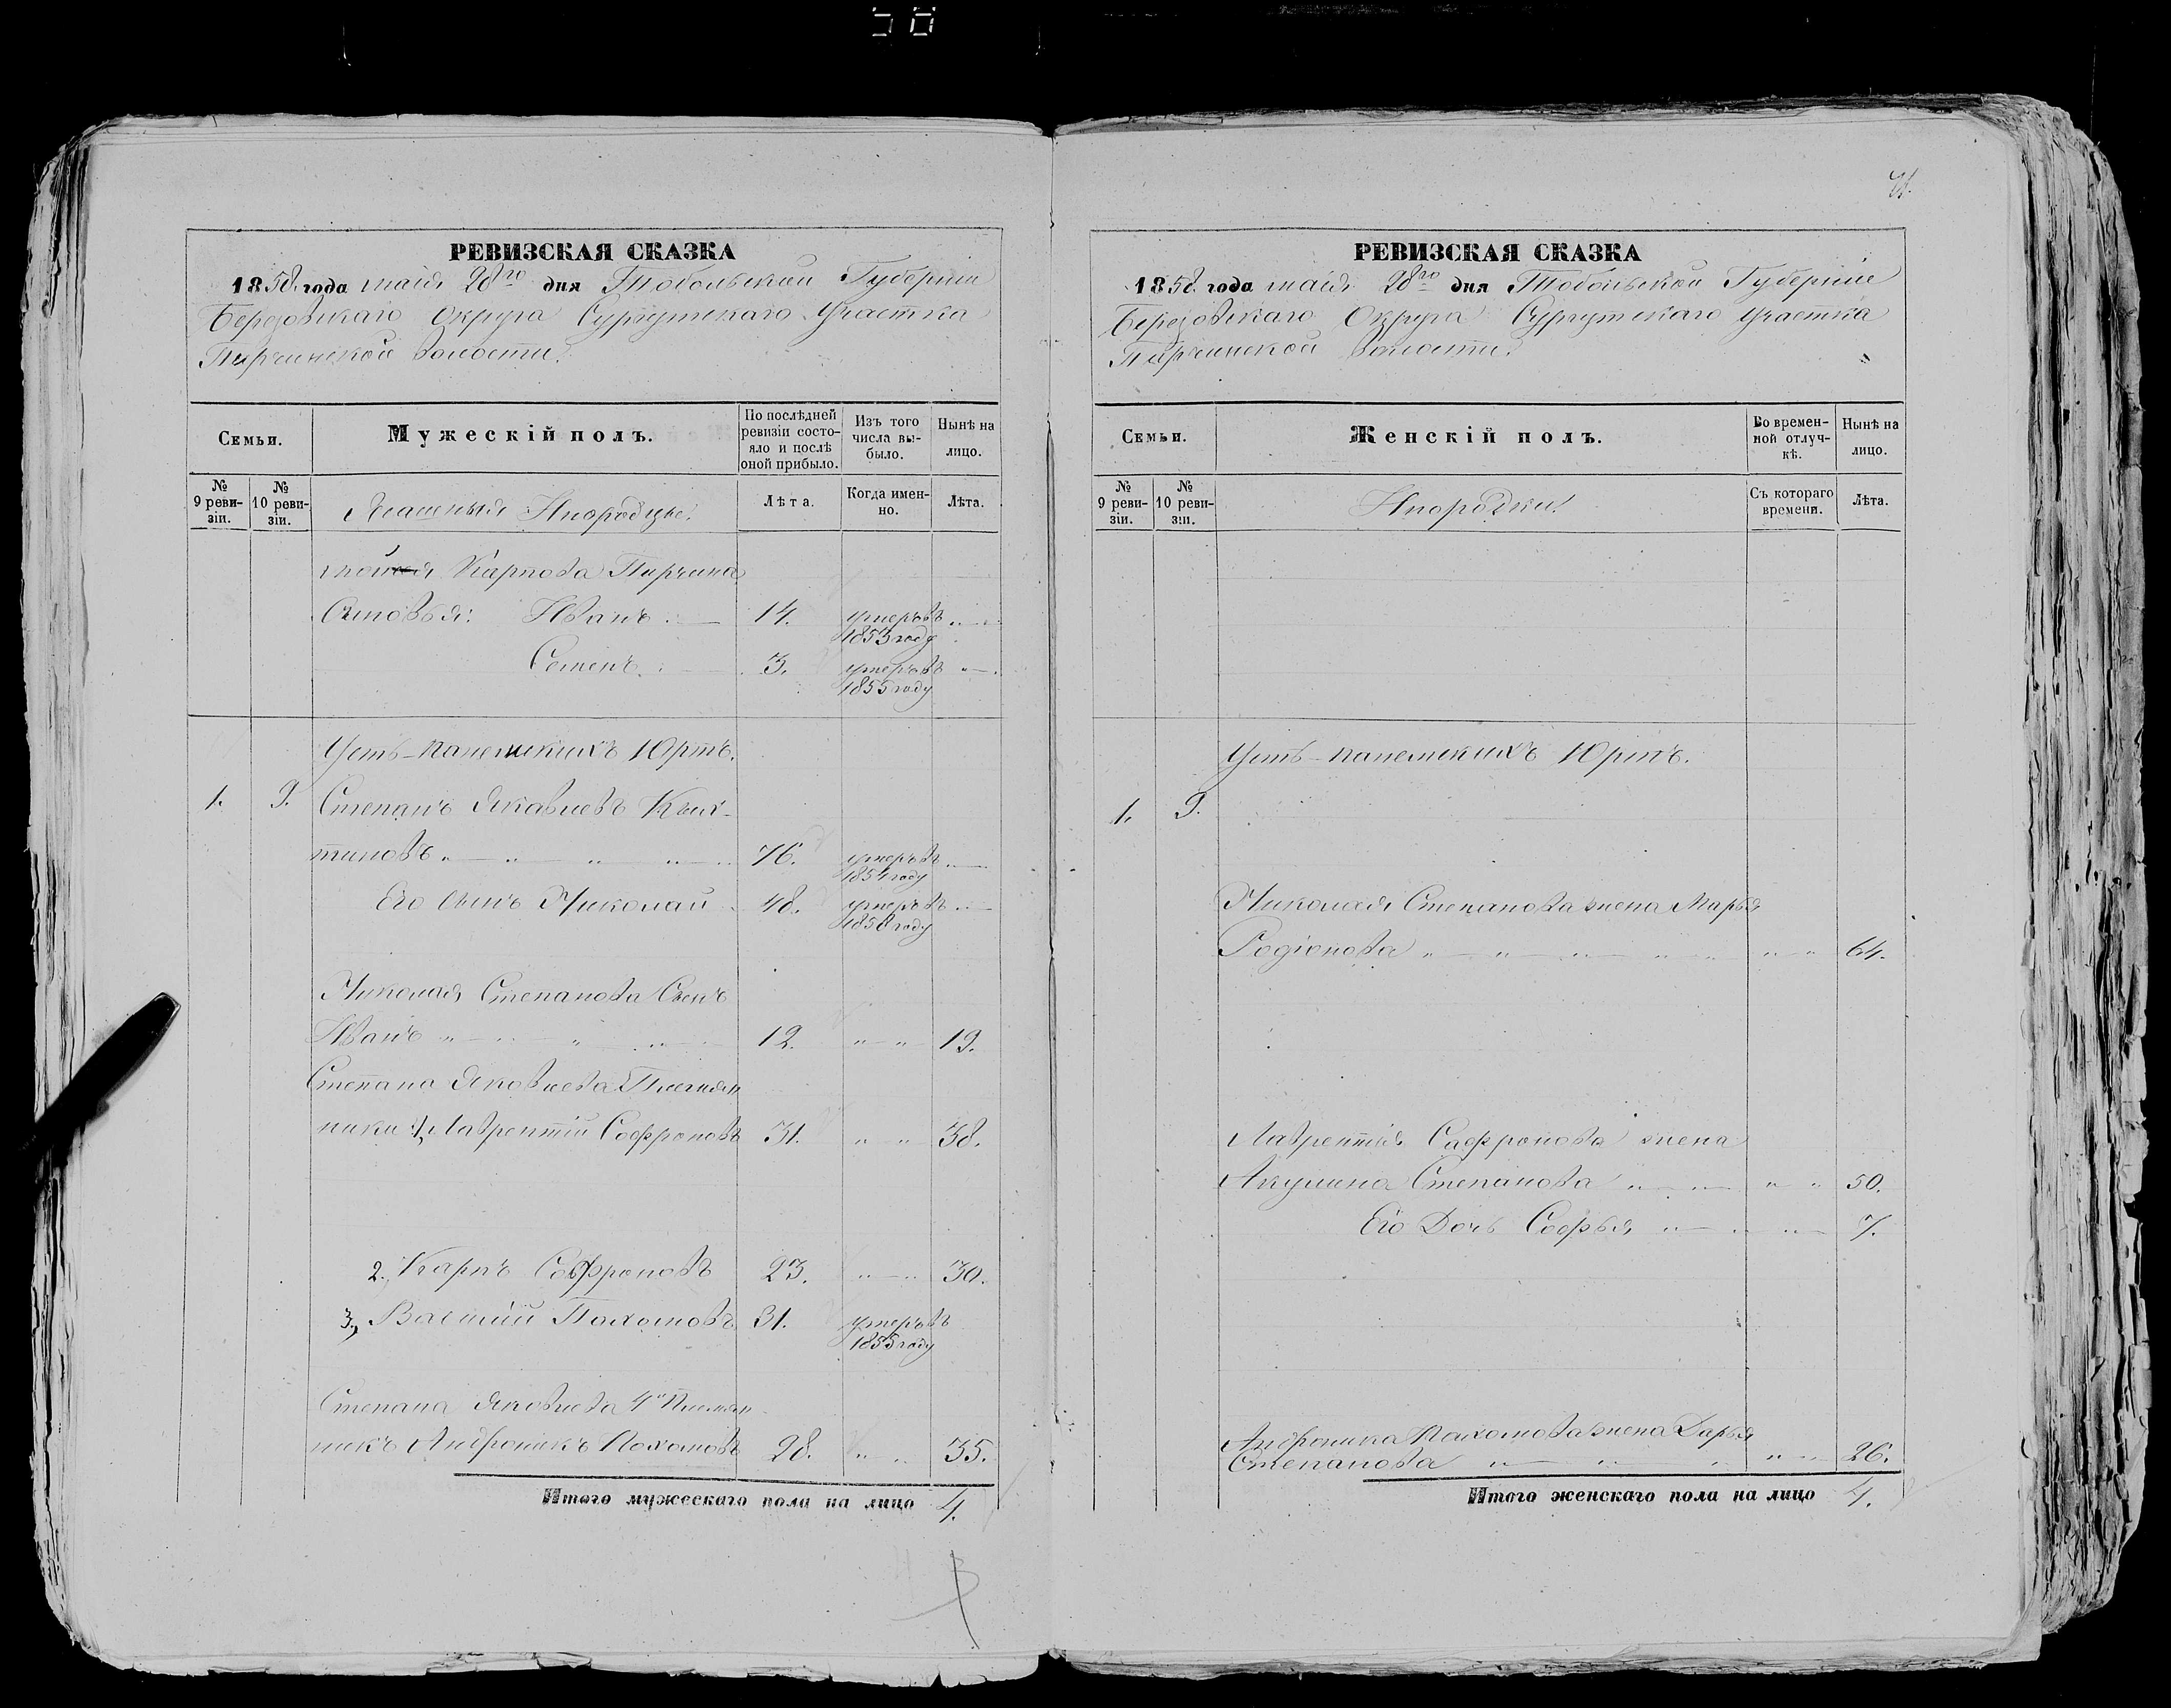 50
РЕВИЗСКАЯ СКАЗКА
1858 года маія 28го дня Тобольской Губерніи
Березовскаго Округа Сургутскаго Участка
Пирчинской волости.
Семьи.
Мужескій полъ.
По послѣдней ревизіи состояло и послѣ оной прибыло.
Изъ того числа выбыло.
Нынѣ на лицо.
№ 9 ревизіи.
№ 10 ревизіи.
Ясашныя Инородцы.
Лѣта.
Когда именно.
Лѣта.
Карпова Пирчина
Сыновья: Иванъ 14. умеръ въ 1853 году
Семенъ 3. умеръ въ 1855 году
Усть-канемскихъ Юртъ.
1. 9. Степанъ Яковлевъ Кых-
тиновъ 76. умеръ въ 1854 году
Его сынъ Николай 48. умеръ въ 1858 году
Николая Степанова Сынъ
Иванъ 12. 19.
Степана Яковлева Племян
ники 1, Лаврентій Софроновъ 31. 38.
2. Карпъ Софроновъ 23. 30.
3., Василій Пахомовъ 31. умеръ въ 1855 году
Степана Яковлева 4й Племян
никъ Андроникъ Пахомовъ 28. 35.
Итого мужескаго пола на лицо 4.
71.
РЕВИЗСКАЯ СКАЗКА
1858 года маія 28го дня Тобольской Губерніи
Березовскаго Округа Сургутскаго Участка
Пирчинской волости.
Семьи.
Женскій полъ.
Во временной отлучкѣ.
Нынѣ на лицо.
№ 9 ревизіи.
№ 10 ревизіи.
Инородки.
Съ котораго времени.
Лѣта.
Усть-канемскихъ Юртъ.
1. 9.
Николая Степанова жена Марья
Родіонова 64.
Лаврентія Сафронова жена
Акулина Степанова 50.
Его Дочь Софья 7.
Андроника Пахомова жена Дарья
Степанова 26.
Итого женскаго пола на лицо 4.